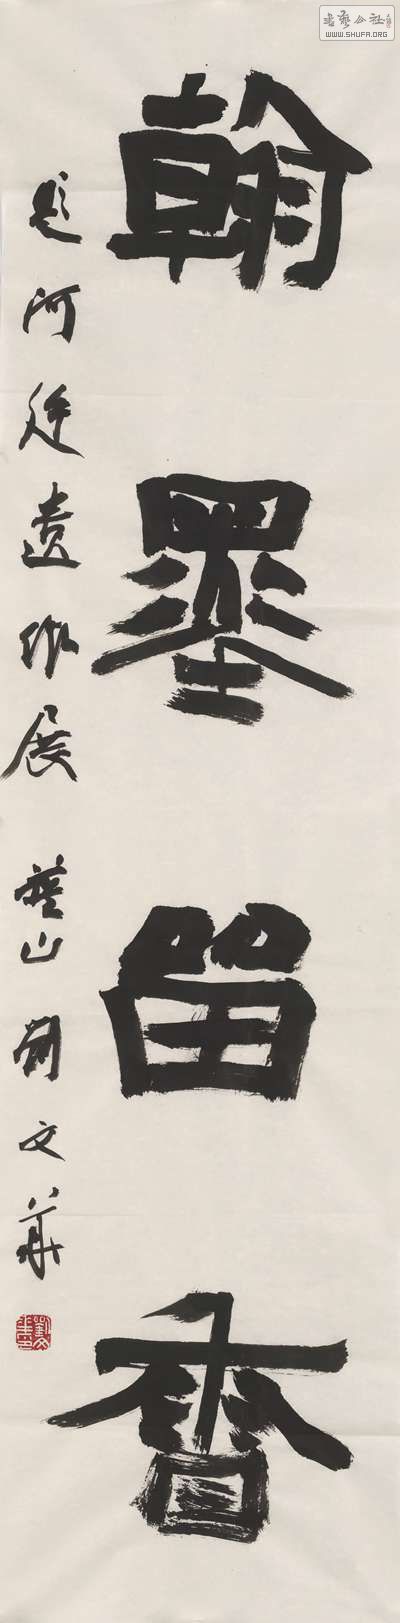 翰墨留香
题河廷遗作展 莹山刘文华
書藝公社
WWW.SHUFA.ORG